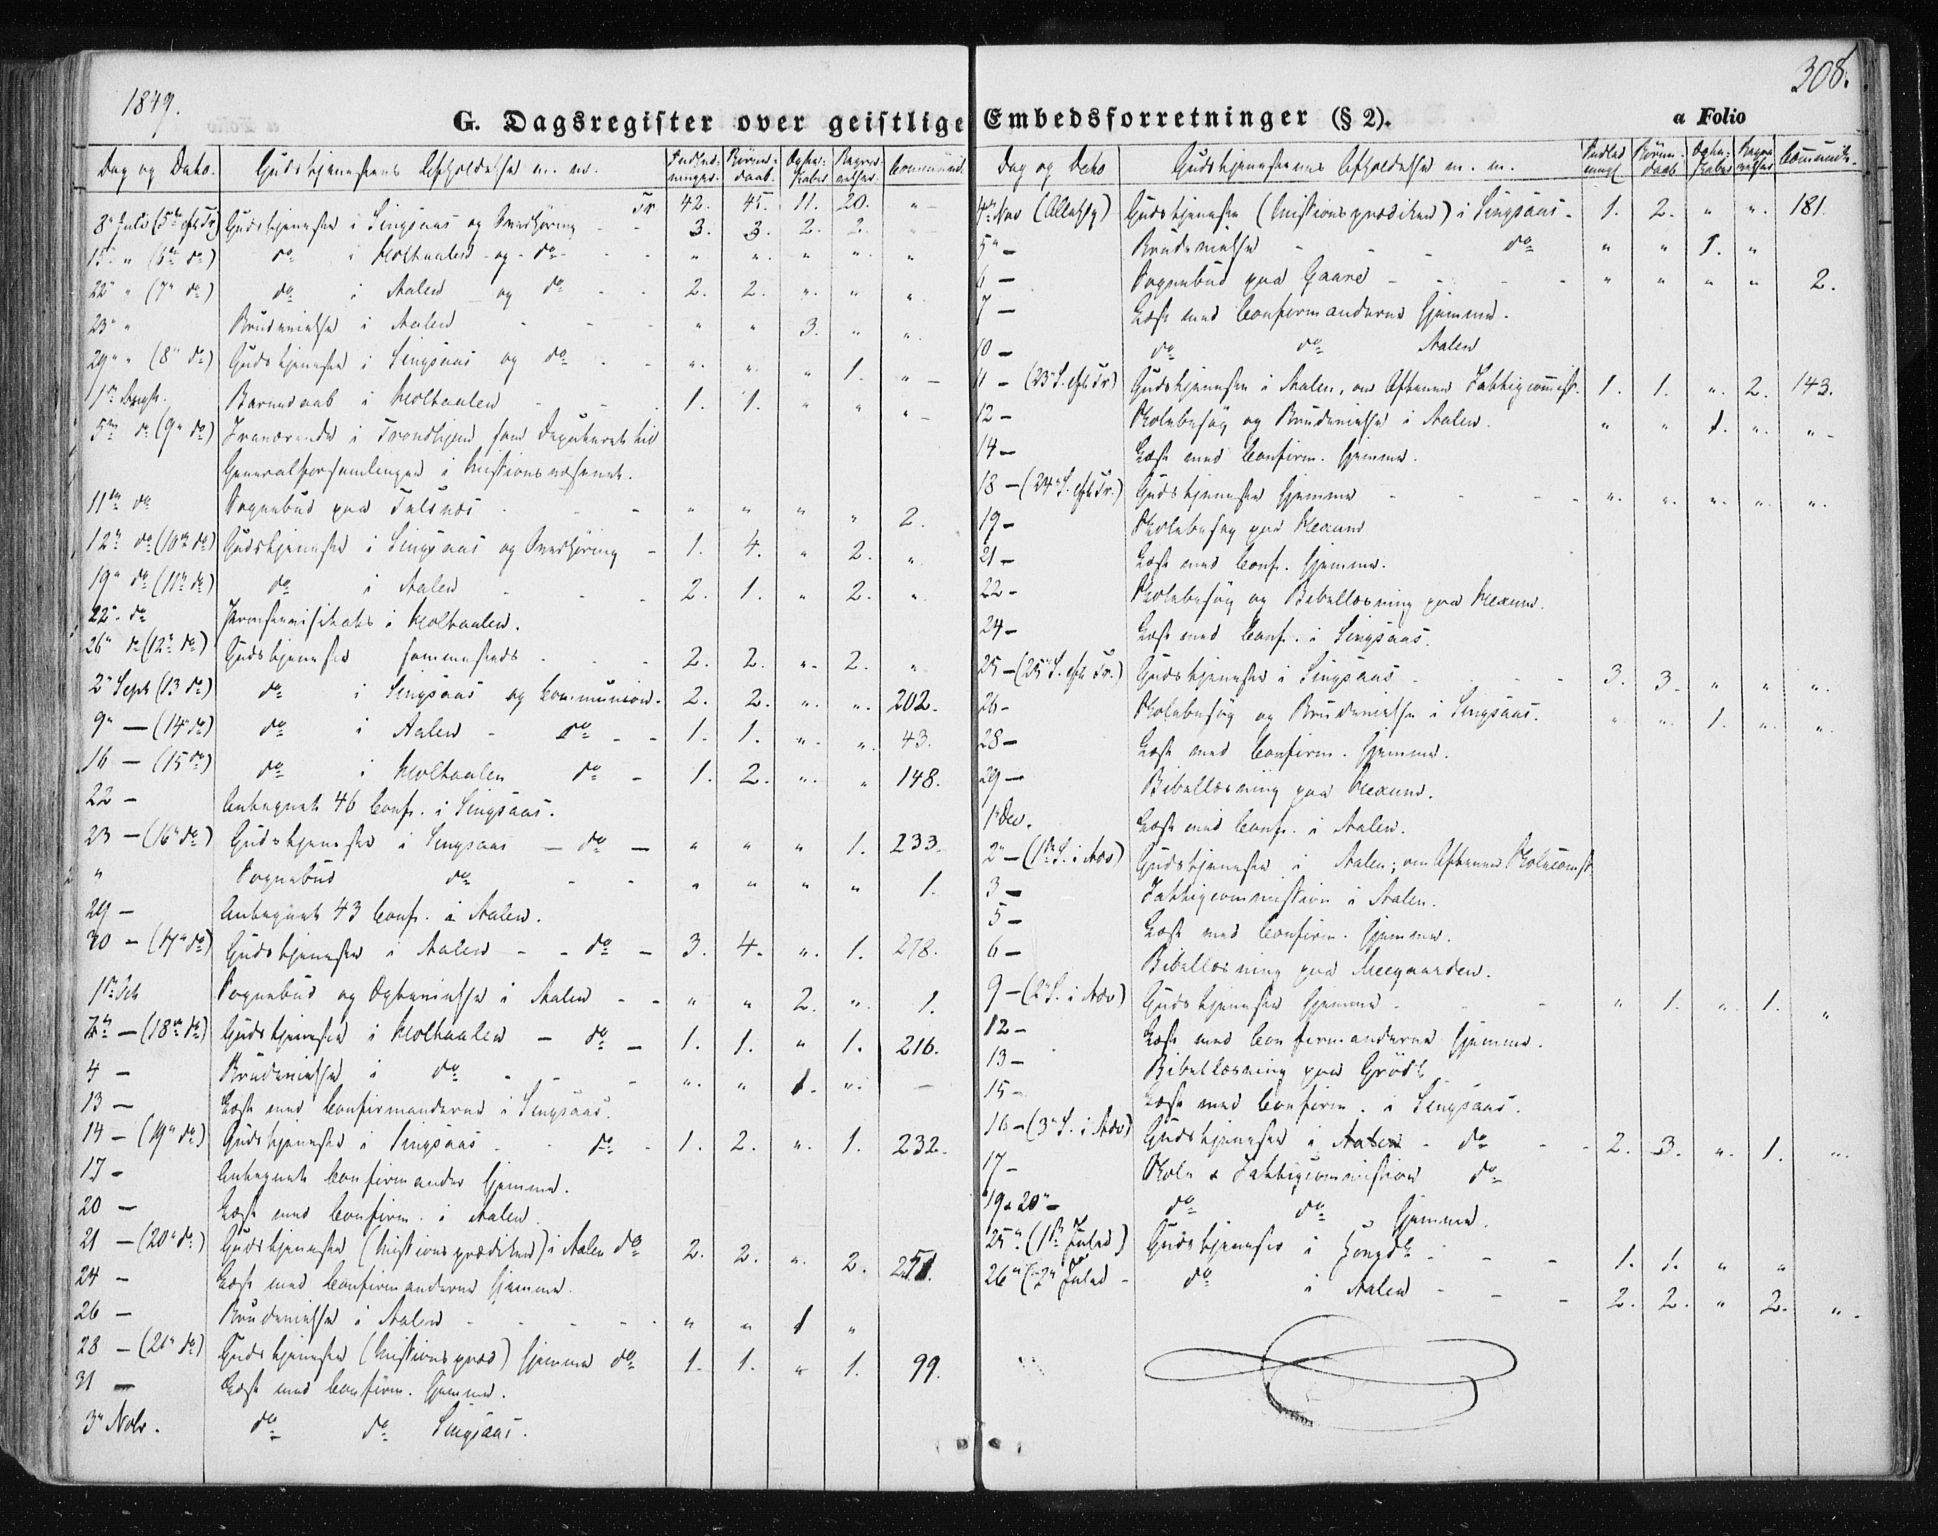 1849.
308.
G. Dagsregister over geistlige Embedsforretninger (§ 2).
a Folio
Dag og Dato. Gudstjenestens Afholdelse m. m. Indled-ninger. Börne-daab. Ægte-skaber Begra-velser. Communic.
Tr. 42. 45. 11. 20. "
8de Juli (5te eft. Tr.) Gudstjeneste i Singsaas og Overhöring - 3. 3. 2. 2. "
15 " (6te do) do i Holtaalen - og - do - - " " " " "
22 " (7de do) do i Aalen og do - - 2. 2. " " "
23 " Brudevielse i Aalen - - - " " 3. " "
29 " (8de do) Gudstjeneste i Singsaas og do - - " " " 1. "
1ste August. Barnedaab i Holtaalen - - 1. 1. " " "
5te do (9de do) Fraværende i Trondhjem som Deputeret til
Generalforsamlingen i Missionsvæsenet.
11te do Sognebud paa - - " " " " 2.
12te do (10de do) Gudstjeneste i Singsaas og Overhöring - 1. 4. " 2. "
19de do (11te do) do i Aalen - - 2. 1. " 2. "
22de do Provstevisitats i Holtaalen.
26de do (12te do) Gudstjeneste sammesteds - - 2. 2. " 2. "
2den Sept (13 do) do i Singsaas og Communion. 2. 2. " " 202.
9de — (14 do) do i Aalen - do - - 1. 1. " " 43.
16 — (15 do) do i Holtaalen do - 1. 2. " " 148.
22 — Antegnet 46 Conf. i Singsaas.
23 — (16de do) Gudstjeneste i Singsaas — do — " " " 1. 233.
" Sognebud do - - " " " " 1.
29 — Antegnet 43 Conf. i Aalen.
30 — (17de do) Gudstjeneste i Aalen - - do — 3. 4. " 1. 278.
1ste Oct Sognebud og Ægtevielse i Aalen - - " " 2. " 1.
7de — (18de do) Gudstjeneste i Holtaalen — do — 1. 1. " 1. 216.
4 — Brudevielse i do - - - " " 1. " —
13 — Læst med Confirmanderne i Singsaas.
14 — (19de do) Gudstjeneste i Singsaas - do - 1. 2. " 1. 232.
17 — Antegnet Confirmander hjemme.
20 — Læst med Confirm. i Aalen.
21 — (20de do) Gudstjeneste (Missionsprædiken) i Aalen do 2. 2. " 2. 251.
24 — Læst med Confirmanderne hjemme.
26 — Brudevielse i Aalen - - - - " " 1 "
28 — (21de do) Gudstjeneste (Missionspræd) hjemme do 1. 1. " 1. 99.
31 — Læst med Confirm. hjemme.
3de Novbr. do do Singsaas.
Dag og Dato Gudstjenestens Afholdelse m. m. Indled-ning Börne-daab Ægte-skaber Begra-velser Communic.
4de Nov (Allehlg) Gudstjeneste (Missionsprædiken) i Singsaas - 1. 2. " " 181.
5de — Brudevielse - - do " " 1. "
6 — Sognebud paa Gaare - - - - " " " " 2.
7 — Læst med Confirmanderne hjemme.
10 — do do Aalen
11 — (23de S. eft. Tr.) Gudstjeneste i Aalen, om Aftenen Fattigcomiss. 1. 1. " 2. 143.
12 — Skolebesøg og Brudevielse i Aalen. " " 1. " "
14 — Læst med Confirm. hjemme.
18 — (24de S. eft. Tr.) Gudstjeneste hjemme - - - - " " " " "
19 — Skolebesøg paa Hexum
21 — Læst med Conf. hjemme.
22 — Skolebesøg og Bibellæsning paa Hexum.
24 — Læst med Conf. i Singsaas.
25 — (25de S. eft. Tr.) Gudstjeneste i Singsaas - - - 3. 3. " " "
26 — Skolebesøg og Brudevielse i Singsaas. " " 1. " "
28 — Læst med Confirm. hjemme.
29 — Bibellæsning paa Hexum.
1ste Dec. Læst med Conf. i Aalen.
2 — (1ste S. i Adv) Gudstjeneste i Aalen; om Aftenen Skolecomiss.
3 — Fattigcommission i Aalen.
5 — Læst med Confirm. hjemme.
6 — Bibellæsning paa Meegaarden.
9 — (2den S. i Adv) Gudstjeneste hjemme - - - " 1. " 1. "
12 — Læst med Confirmanderne hjemme.
13 — Bibellæsning paa Gröte
15 — Læst med Confirm. i Singsaas.
16 — (3de S. i Adv) Gudstjeneste i Aalen - do - - 2. 3. " 1. "
17 — Skole & Fattigcommission do
19 & 20de — do do hjemme.
25de (1ste Juled.) Gudstjeneste i - - - 1. 1. " "
26de (2den Juled - do i Aalen - - - 2. 2. " 2. "